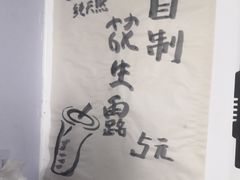 自制
花生露
纯天然
5元